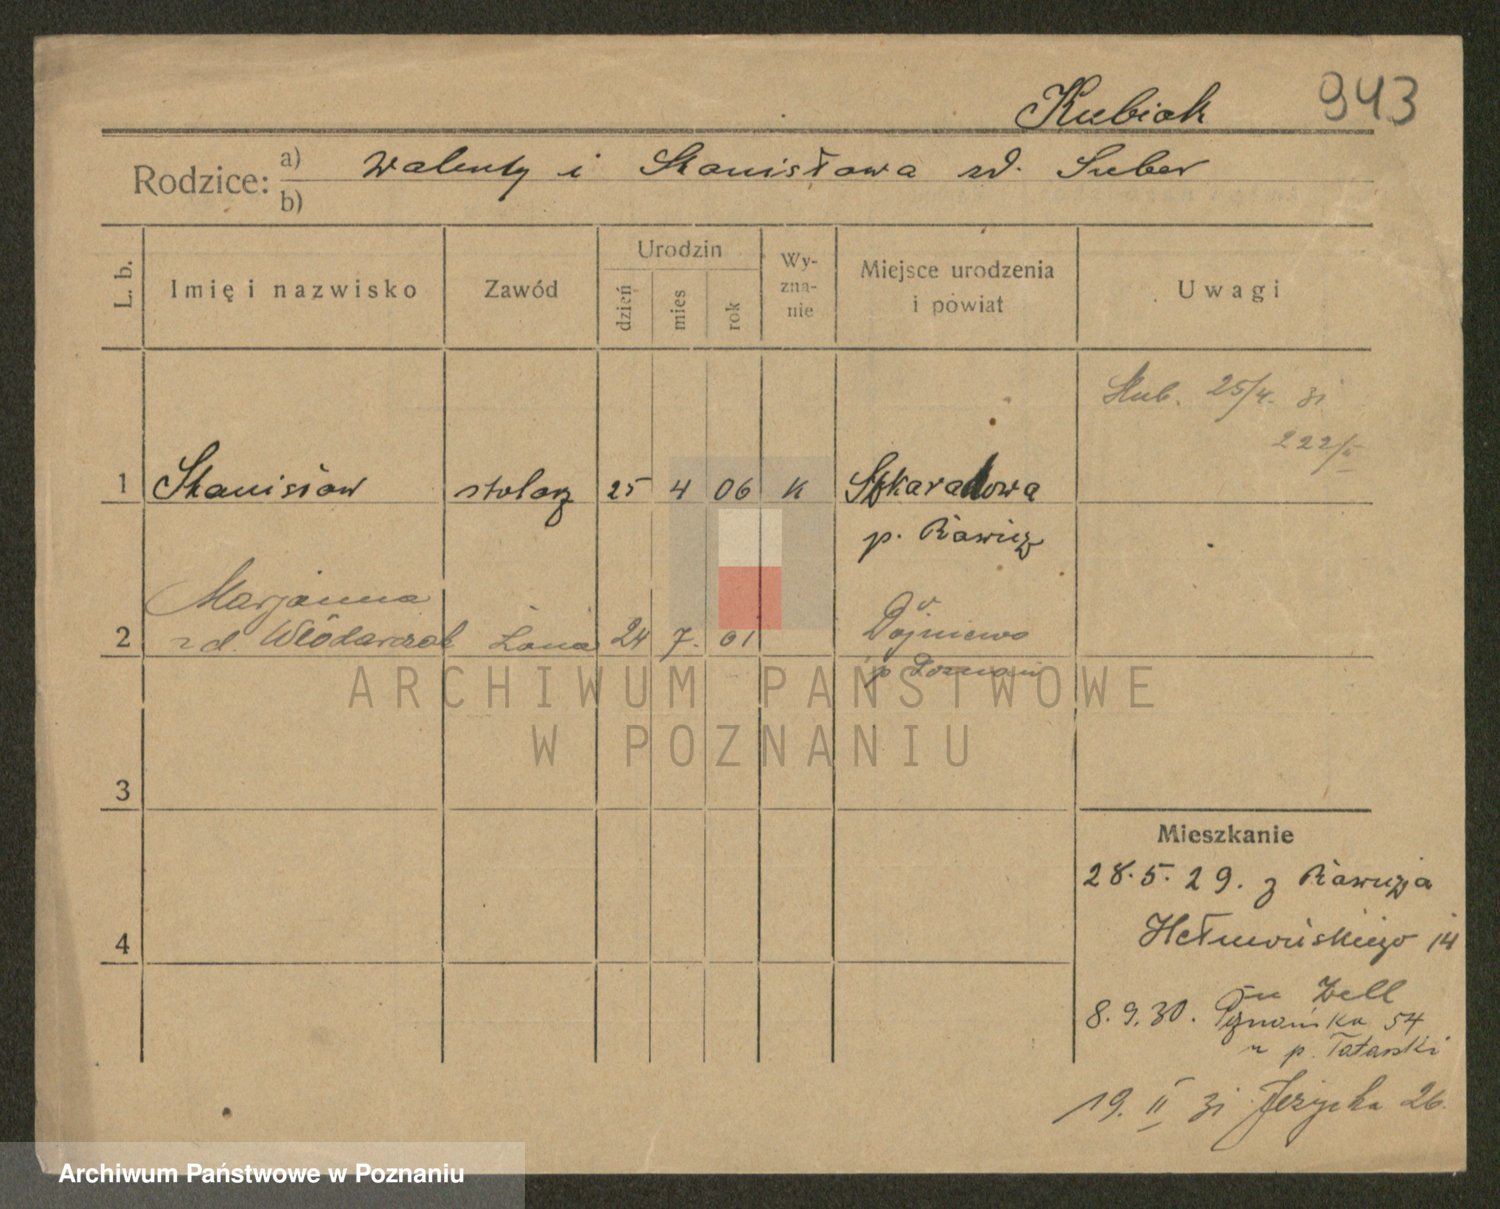 Kubiak 943
Rodzice: a) Walenty i Stanisława zd. Suber
b)
L. b. Imię i nazwisko Zawód Urodzin dzień mies rok Wy-zna-nie Miejsce urodzenia i powiat Uwagi
25/4. 31
222/II
1 Stanisław stolarz 25 4 06 K Szkaradowa
p. Rawicz
Marjanna
2 zd. Włódarczak żona 24 7. 01
p Poznań
3
4
Mieszkanie
28.5.29. z Rawicza
Hełmońskiego 14
u Zell
8.9.30. Poznańska 54
u p. Tatarski
19. II 31 Jeżycka 26.
ARCHIWUM PAŃSTWOWE
W POZNANIU
Archiwum Państwowe w Poznaniu